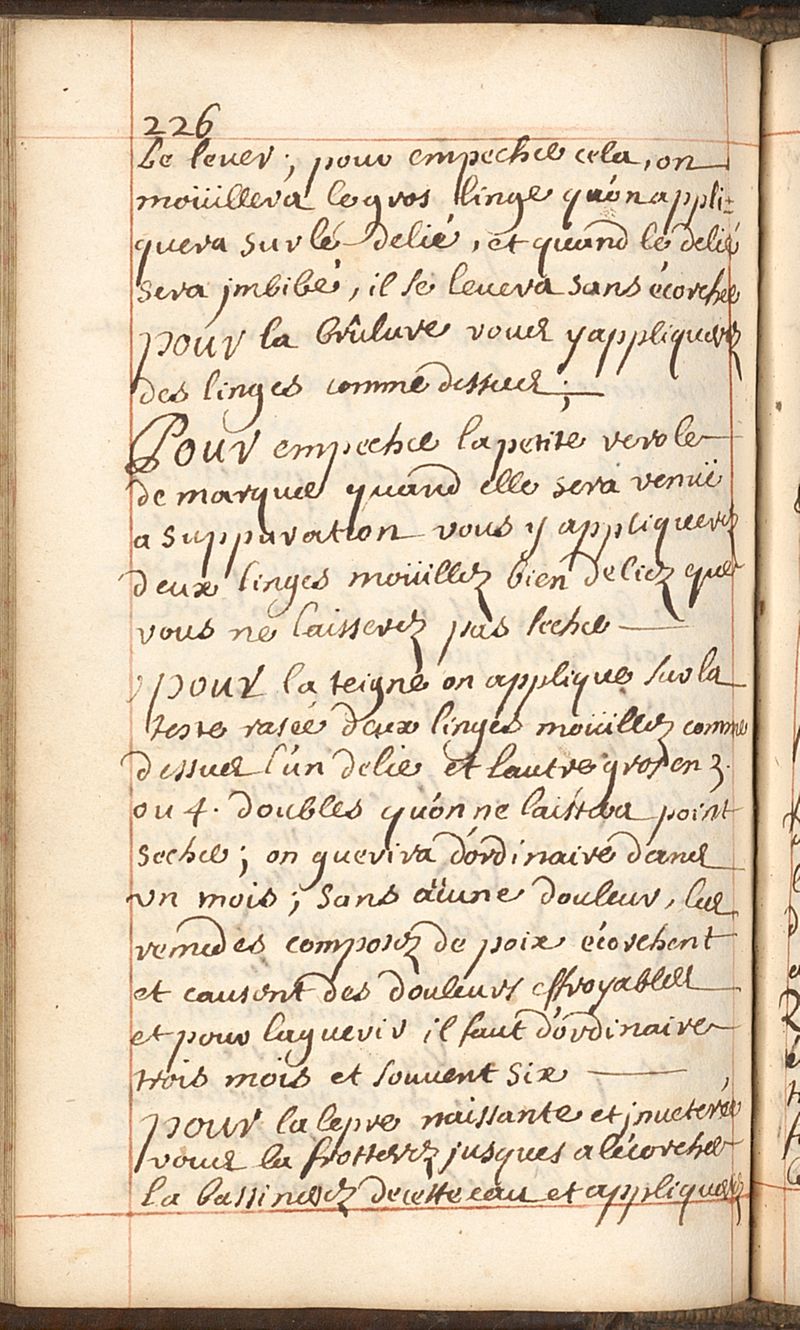 226
Le lever ; pour empecher cela, on
moüillera le gros linge qu'on appli=
quera sur lé delié, et quand le delié
sera jmbibé, il se levera sans écorcher
pour la brûlure vous y appliquerez
des linges comme dessus ;
Pour empecher la petite verole
de marquer quand elle sera venüe
a suppuration vous y appliquerez
deux linges moüillez bien deliez que
vous ne laisserez pas secher
pour la teigne on applique sur la
teste rasée deux linges moüillez comme
dessus l'un delié et lautre gros en 3.
ou 4. doubles qu'on ne laissera point
secher ; on guerira d'ordinaire dans
un mois ; sans aüune douleur, les
remedes composez de poix écorchent
et causent des douleurs effroyables
et pour la guerir il faut d'ordinaire
trois mois et souvent six
pour la lepre naissante et jnveterée
vous la frotterez jusques a lécorcher
la bassinerez de cette eau et appliquerez